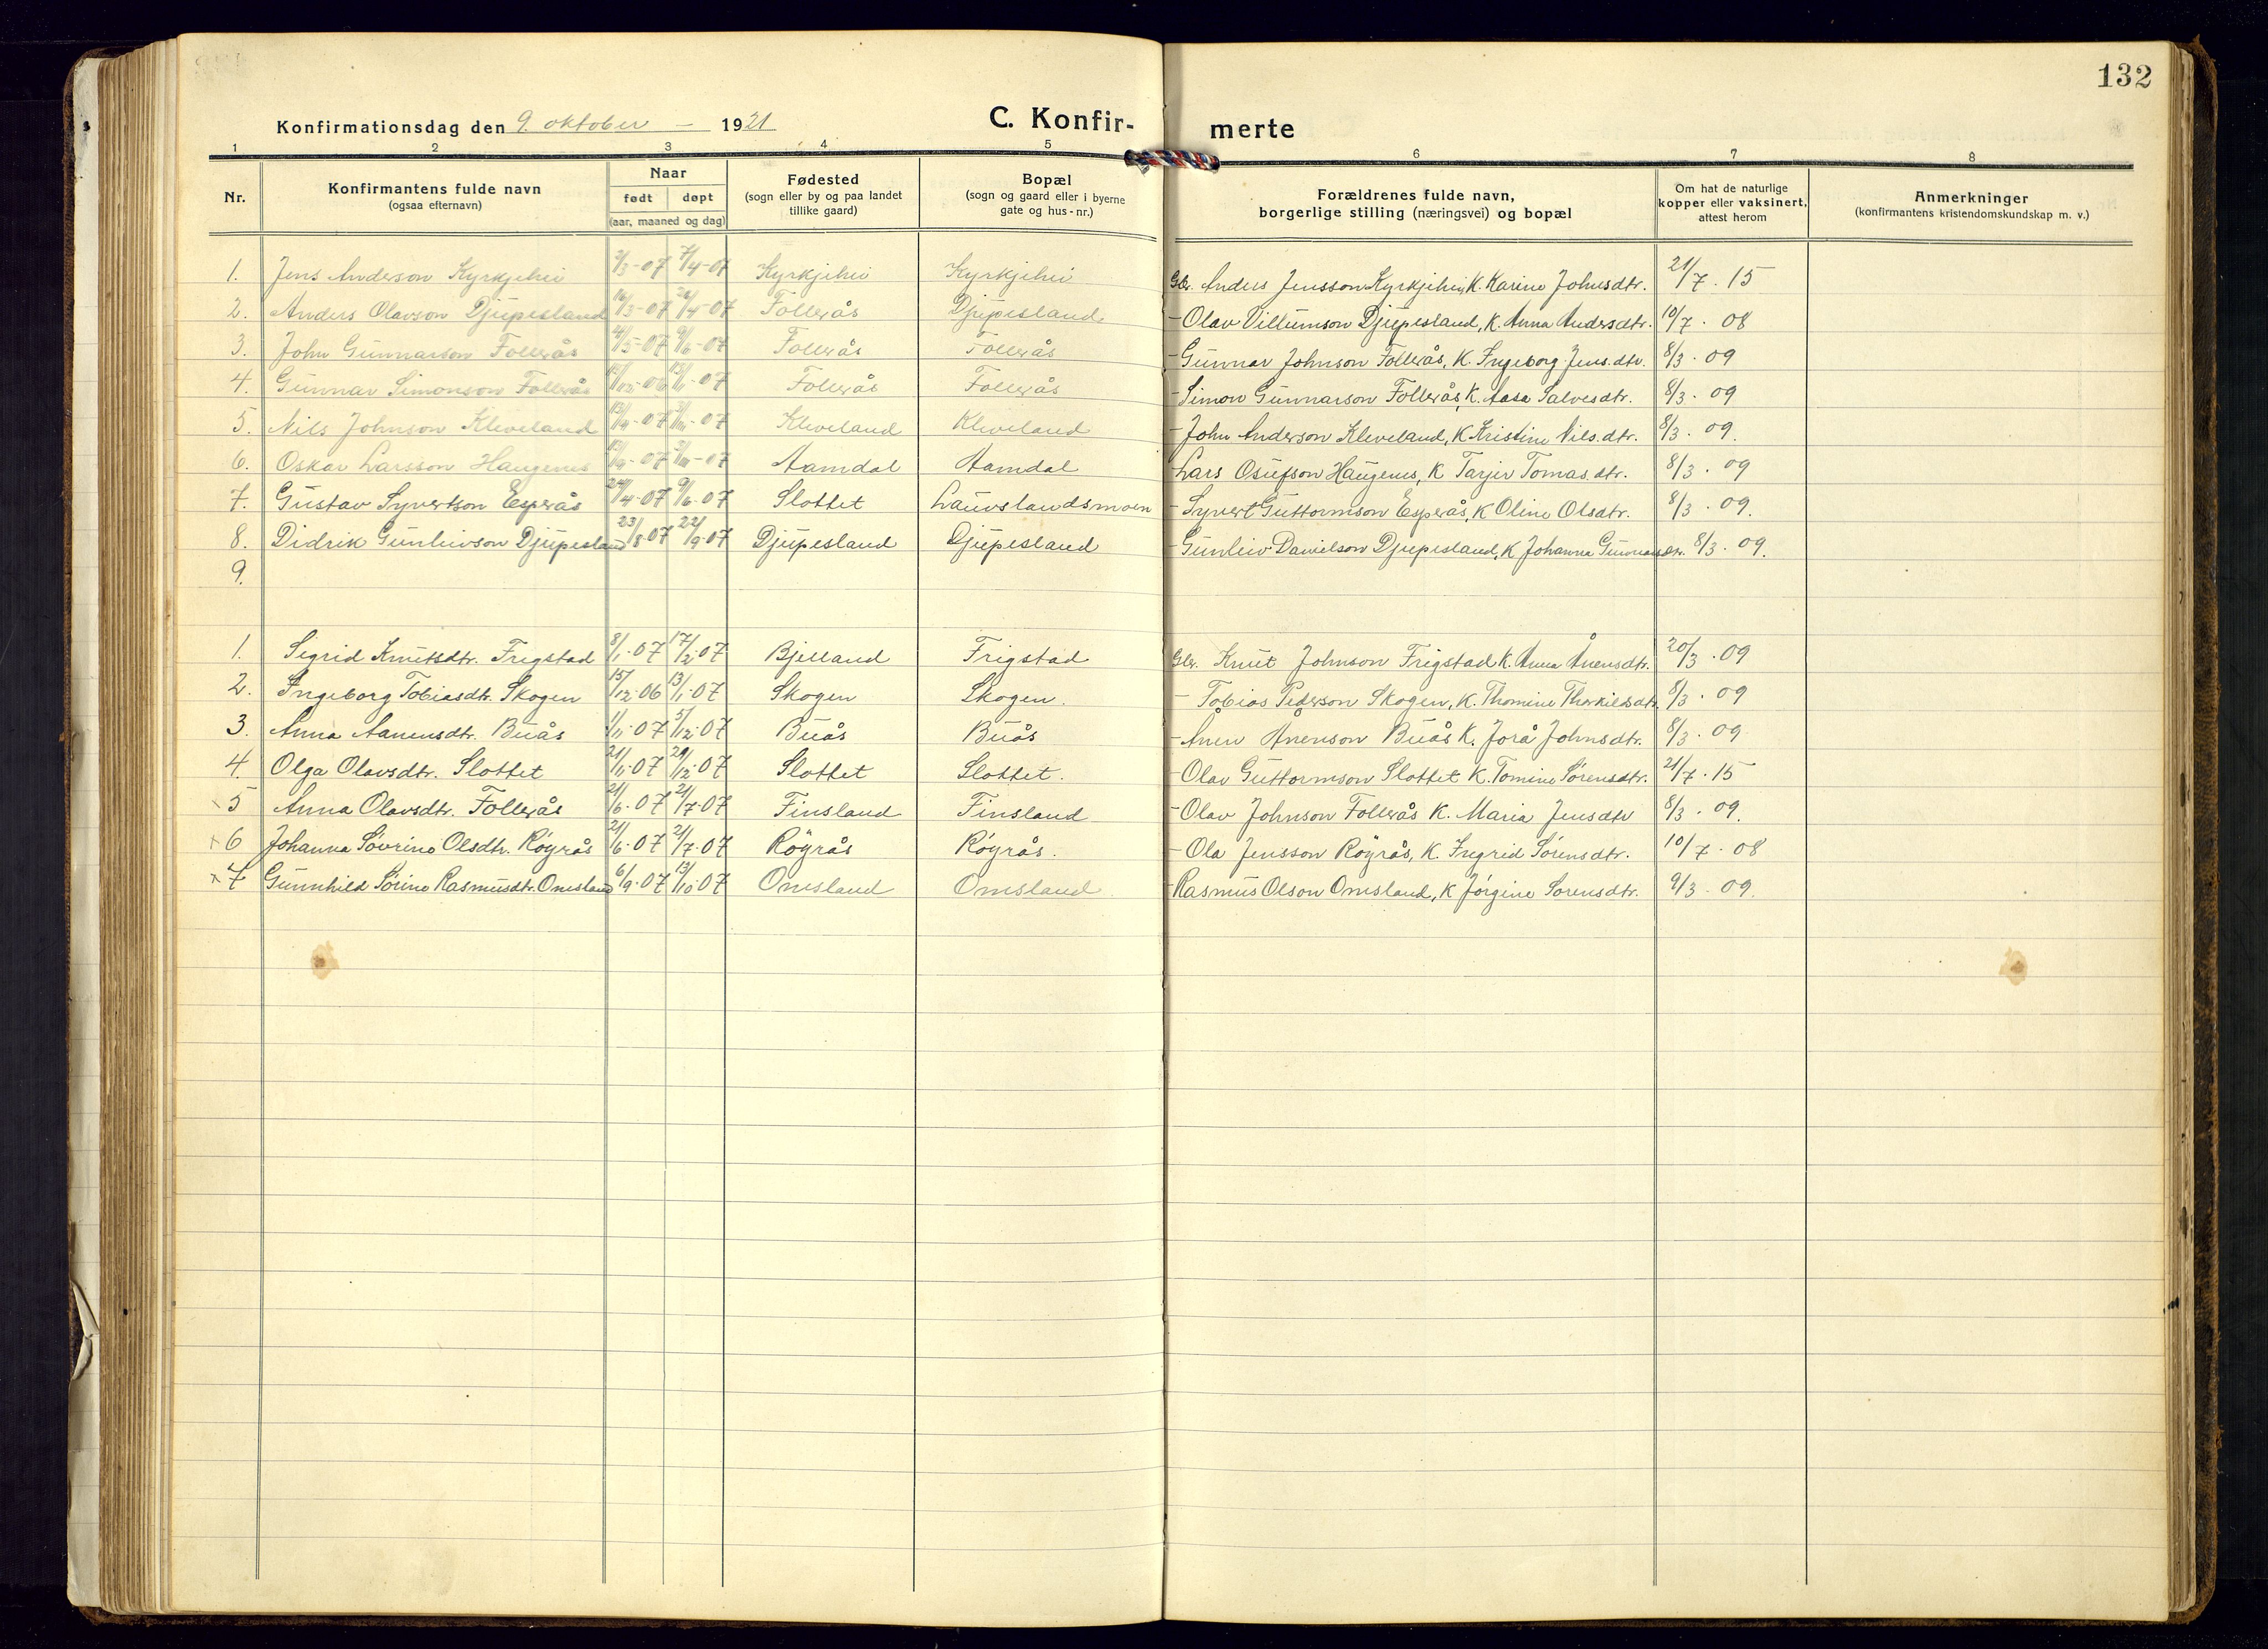 132
Konfirmationsdag den 9. oktober – 1921
C. Konfir-
merte
1 2 3 4 5 6 7 8
Nr.
Konfirmantens fulde navn
(ogsaa efternavn)
Naar
født døpt
(aar, maaned og dag)
Fødested
(sogn eller by og paa landet
tillike gaard)
Bopæl
(sogn og gaard eller i byerne
gate og hus-nr.)
Forældrenes fulde navn,
borgerlige stilling (næringsvei) og bopæl
Om hat de naturlige
kopper eller vaksinert,
attest herom
Anmerkninger
(konfirmantens kristendomskundskap m. v.)
1. Jens Anderson Kyrkjehei 3/3-07 7/4-07 Kyrkjehei Kyrkjehei Gbr. Anders Jensson Kyrkjehei, K. Karine Johnsdtr. 21/7. 15
2. Anders Olavson Djupesland 16/3-07 /4-07 Follerås Djupesland - Olav Villumson Djupesland, K. Anna Andersdtr. 10/7. 08
3. John Gunnarson Follerås /5-07 9/6-07 Follerås Follerås - Gunnar Johnson Follerås, K. Ingeborg Jens.dtr. 8/3. 09
4. Gunnar Simonson Follerås /12-06 13/1-07 Follerås Follerås - Simon Gunnarson Follerås, K. Aasa Salvesdtr. 8/3. 09
5. Nils Johnson Kleveland -07 -07 Kleveland Kleveland - John Anderson Kleveland, K Kristine Nils.dtr. 8/3. 09.
6. Oskar Larsson Haugenes -07 -07 Aamdal Aamdal - Lars Osufson Haugenes, K Tarjer Tomas.dtr. 8/3. 09
7. Gustav Syvertson Esperås 24/4-07 9/6-07 Slottet Lauvslandsmoen - Syvert Guttormson Esperås, K Oline Olsdtr. 8/3. 09.
8. Didrik Gunleivson Djupesland 23/8-07 22/9-07 Djupesland Djupesland - Gunleiv Danielson Djupesland, K Johanna Gunnarsdtr. 8/3. 09.
9.
1. Sigrid Knutsdtr. Frigstad 8/1-07 17/2-07 Bjelland Frigstad Gbr. Knut Johnson Frigstad K. Anna Ånensdtr. 20/3. 09
2. Ingeborg Tobiasdtr. Skogen 15/12-06 13/1-07 Skogen Skogen. - Tobias Pederson Skogen, K. Thomine Thorkildsdtr. 8/3. 09
3. Anna Aanensdtr. Buås 1/11-07 5/12-07 Buås Buås - Ånen Ånenson Buås K. Jorå Johnsdtr. 8/3. 09
4. Olga Olavsdtr. Slottet 21/11-07 29/12-07 Slottet Slottet. - Olav Guttormson Slottet K. Tomine Sørensdtr. 21/7. 15
x 5 Anna Olavsdtr. Follerås 21/6-07 21/7-07 Finsland Finsland - Olav Johnson Follerås K. Maria Jensdtr 8/3. 09.
x 6 Johanna Sövrine Olsdtr. Röyrås 21/6-07 21/7-07 Röyrås Röyrås. - Ola Jensson Röyrås, K. Ingrid Sörensdtr. 10/7. 08
x 7 Gunnhild Sörine Rasmusdtr. Omsland 6/9-07 13/10-07 Omsland Omsland. - Rasmus Olson Omsland, K Jörgine Sorensdtr. 9/3-09.